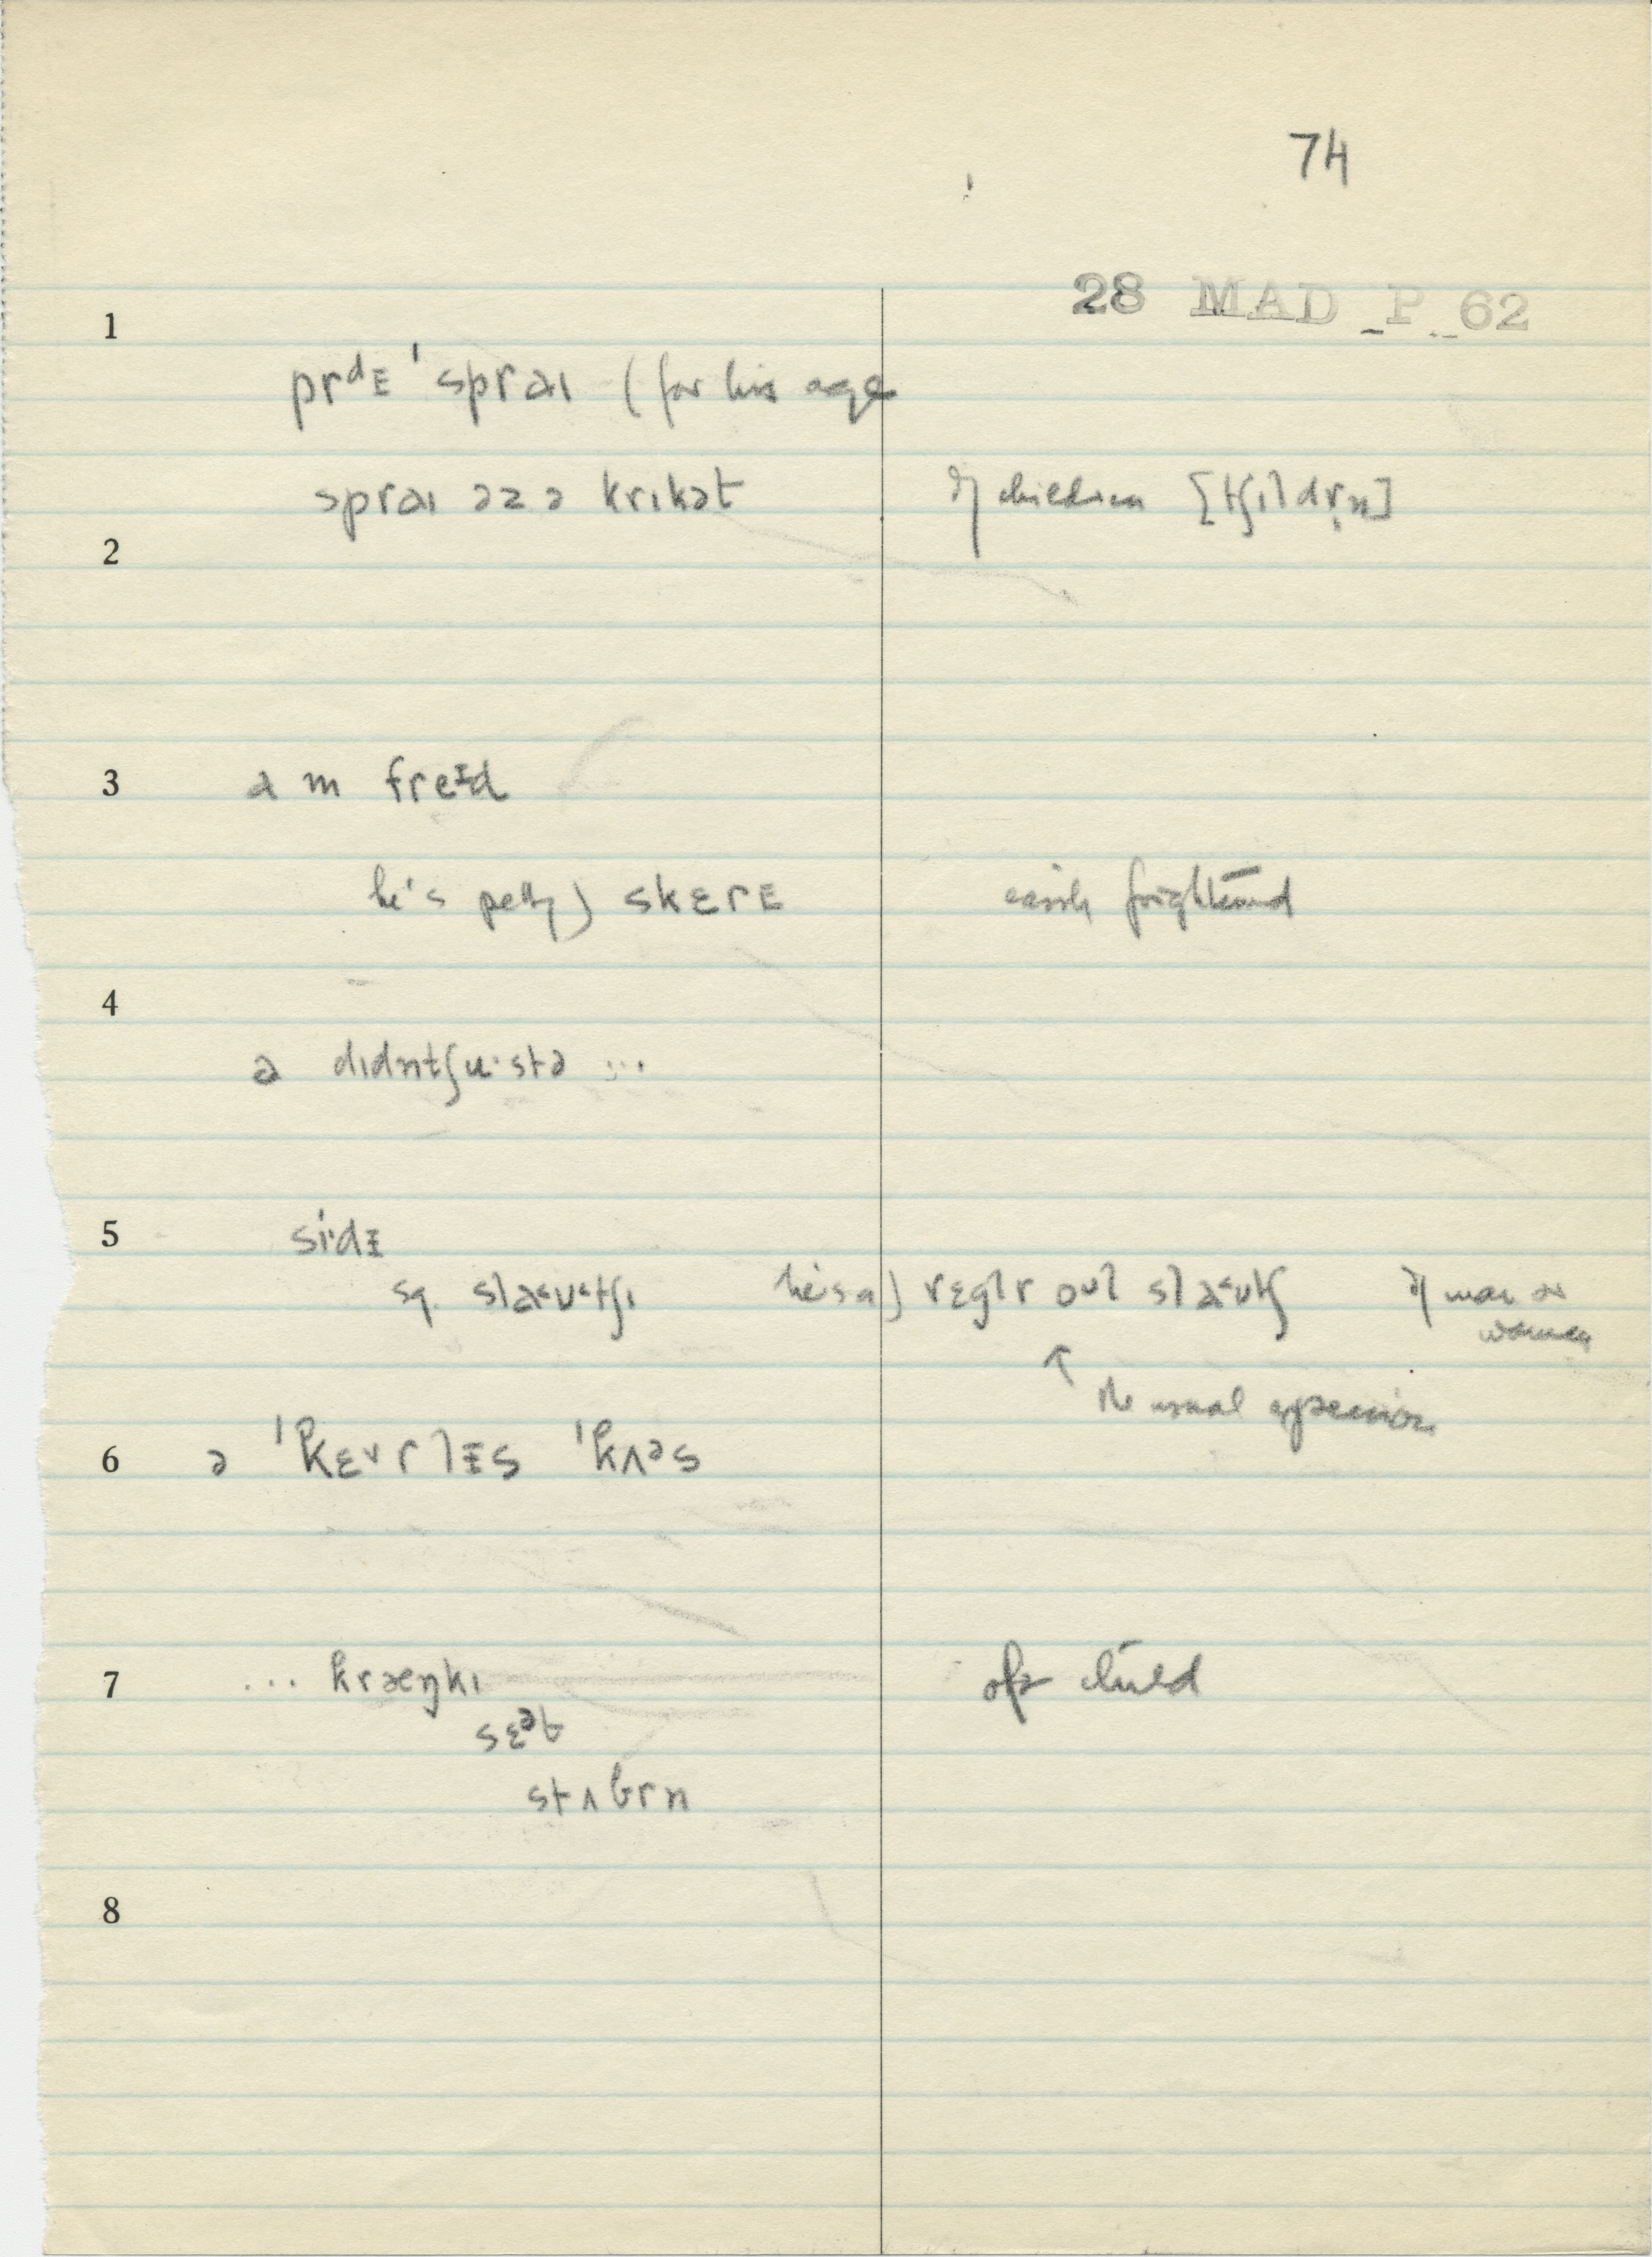 74
28 MAD P 62
1
prᵈᴇ ˈspraɪ (for his age
spraɪ əz ə krɪkət of children [tʃɪldr̩n]
2
3
a m freᵻd
he's pretty) skɛrᴇ easily frightened
4
a dɪdntʃu·stə ...
5 si·dᵻ
sq. slaᵾtʃɪ he's a) rɛglr oᵘl slaᵾtʃ of man or
women
↑ the usual expression
6 ə ˈkɛᵛrlᵻs ˈkʌᵊs
7 ... kræŋkɪ of a child
sɛᵊt
stʌbrn
8